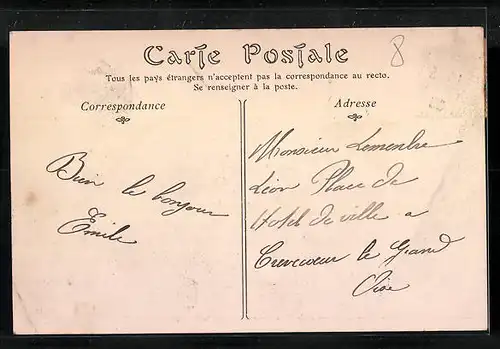 8
Carte Postale
Tous les pays étrangers n'acceptent pas la correspondance au recto.
Se renseigner à la poste.
Correspondance
Adresse
Bien le bonjour
Emile
Monsieur
Léon Place de
Hotel de ville a
Crevecoeur le Grand
Oise